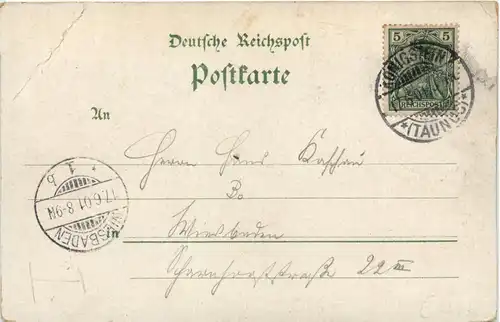 Deutsche Reichspost
Postkarte
5 5
REICHSPOST
KÖNIGSTEIN
*(TAUNUS)*
An
Herrn Hans
* 1 b
17.6.01.8-9N
WIESBADEN
in
Wiesbaden
Scharnhorststraße 22 III